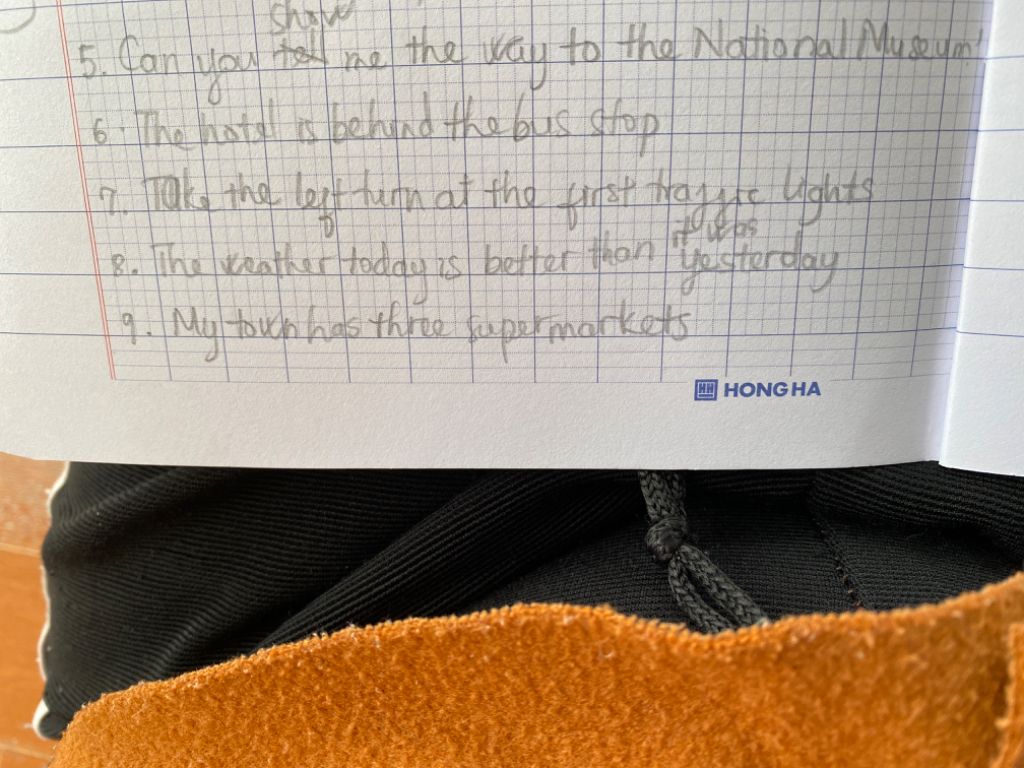 show
5. Can you tell me the way to the National Museum?
6. The hotel is behind the bus stop
7. Take the left turn at the first traffic lights
it was
8. The weather today is better than yesterday
9. My town has three supermarkets
HONG HA